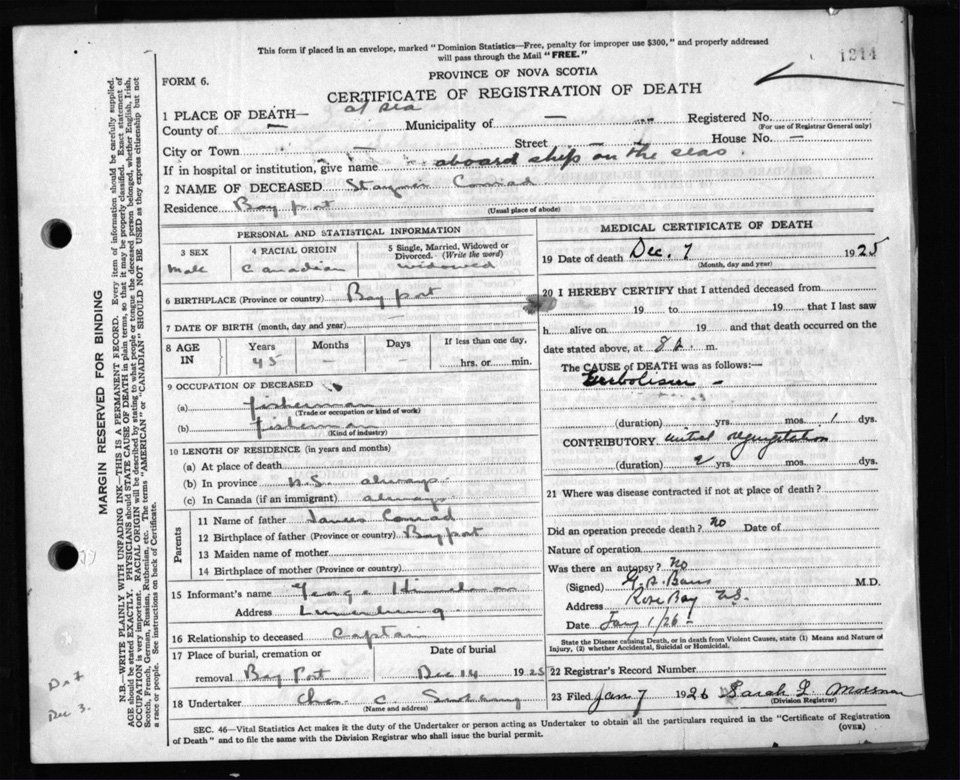 This form if placed in an envelope, marked "Dominion Statistics—Free, penalty for improper use $300," and properly addressed
will pass through the Mail "FREE."
1214
PROVINCE OF NOVA SCOTIA
FORM 6.
CERTIFICATE OF REGISTRATION OF DEATH
1 PLACE OF DEATH— at sea
Registered No.
County of — Municipality of —
(For use of Registrar General only)
City or Town — Street — House No. —
If in hospital or institution, give name aboard ship on the seas.
2 NAME OF DECEASED Conrad
Residence Bay port
(Usual place of abode)
PERSONAL AND STATISTICAL INFORMATION
3 SEX
male
4 RACIAL ORIGIN
Canadian
5 Single, Married, Widowed or
Divorced. (Write the word)
widowed
6 BIRTHPLACE (Province or country) Bay port
7 DATE OF BIRTH (month, day and year)
8 AGE
IN
Years
45
Months
—
Days
—
If less than one day,
hrs. or min.
9 OCCUPATION OF DECEASED
(a) fisherman
(Trade or occupation or kind of work)
(b) fisherman
(Kind of industry)
10 LENGTH OF RESIDENCE (in years and months)
(a) At place of death
(b) In province N.S. always
(c) In Canada (if an immigrant) always
Parents
11 Name of father James Conrad
12 Birthplace of father (Province or country) Bayport
13 Maiden name of mother
14 Birthplace of mother (Province or country)
15 Informant's name George
Address Lunenburg
16 Relationship to deceased Captain
17 Place of burial, cremation or
removal Bay Port
Date of burial
Dec 14 1925
18 Undertaker C.
(Name and address)
MEDICAL CERTIFICATE OF DEATH
19 Date of death Dec. 7 1925
(Month, day and year)
20 I HEREBY CERTIFY that I attended deceased from
19 to 19 that I last saw
h alive on 19 and that death occurred on the
date stated above, at 8 m.
The CAUSE of DEATH was as follows:—
Embolism —
(duration) yrs. mos. 1 dys.
CONTRIBUTORY. mitral regurgitation
(duration) 2 yrs. mos. dys.
21 Where was disease contracted if not at place of death?
Did an operation precede death? no Date of
Nature of operation
Was there an autopsy? No
(Signed) M.D.
Address Rose Bay N.S.
Date Jany 1/26
State the Disease causing Death, or in death from Violent Causes, state (1) Means and Nature of
Injury, (2) whether Accidental, Suicidal or Homicidal.
22 Registrar's Record Number
23 Filed Jan 7 1926 Sarah
(Division Registrar)
SEC. 46—Vital Statistics Act makes it the duty of the Undertaker or person acting as Undertaker to obtain all the particulars required in the "Certificate of Registration
of Death" and to file the same with the Division Registrar who shall issue the burial permit.
(OVER)
MARGIN RESERVED FOR BINDING
N.B.—WRITE PLAINLY WITH UNFADING INK—THIS IS A PERMANENT RECORD. Every item of information should be carefully supplied.
AGE should be stated EXACTLY. PHYSICIANS should STATE CAUSE OF DEATH in plain terms, so that it may be properly classified. Exact statement of
OCCUPATION is very important. RACIAL ORIGIN will be described by stating to what people or tongue the deceased person belonged, whether English, Irish,
Scotch, French, German, Russian, Ruthenian, etc. The terms "AMERICAN" or "CANADIAN" SHOULD NOT BE USED as they express citizenship but not
a race or people. See instructions on back of Certificate.
Dec 3.